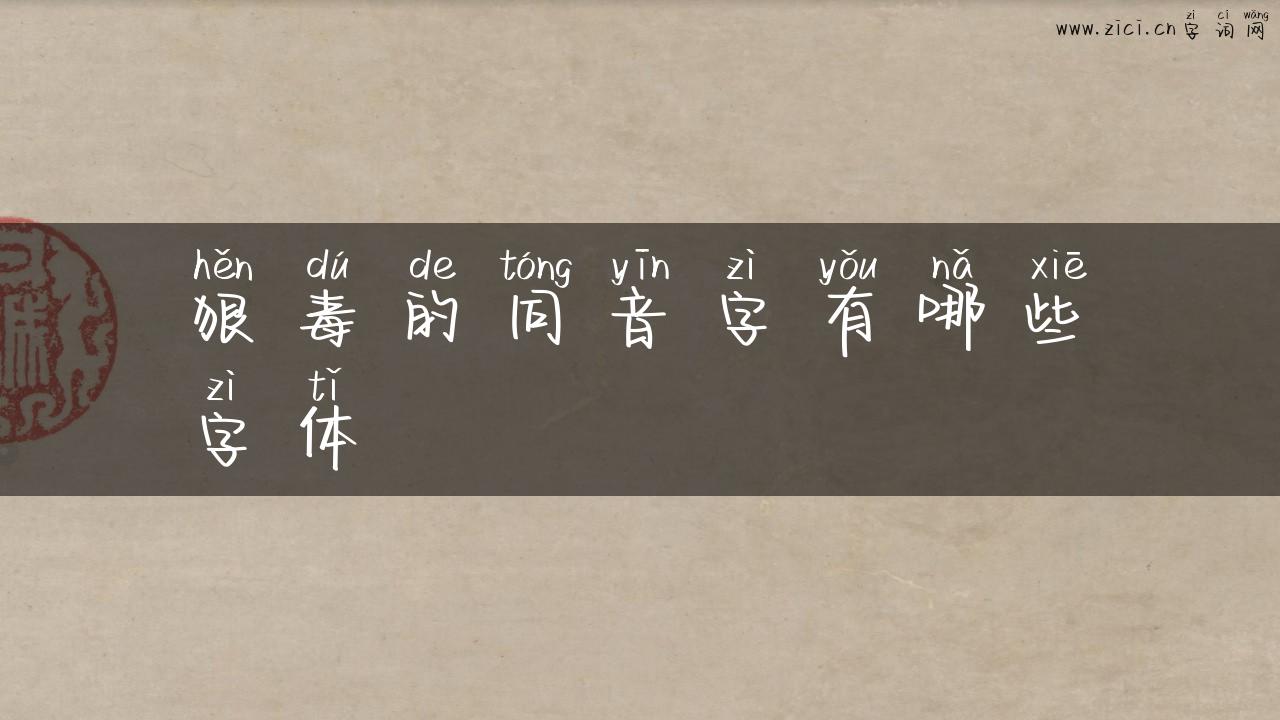 zì cí wǎng
www.zici.cn 字词网
hěn dú de tóng yīn zì yǒu nǎ xiē
狠毒的同音字有哪些
zì tǐ
字体